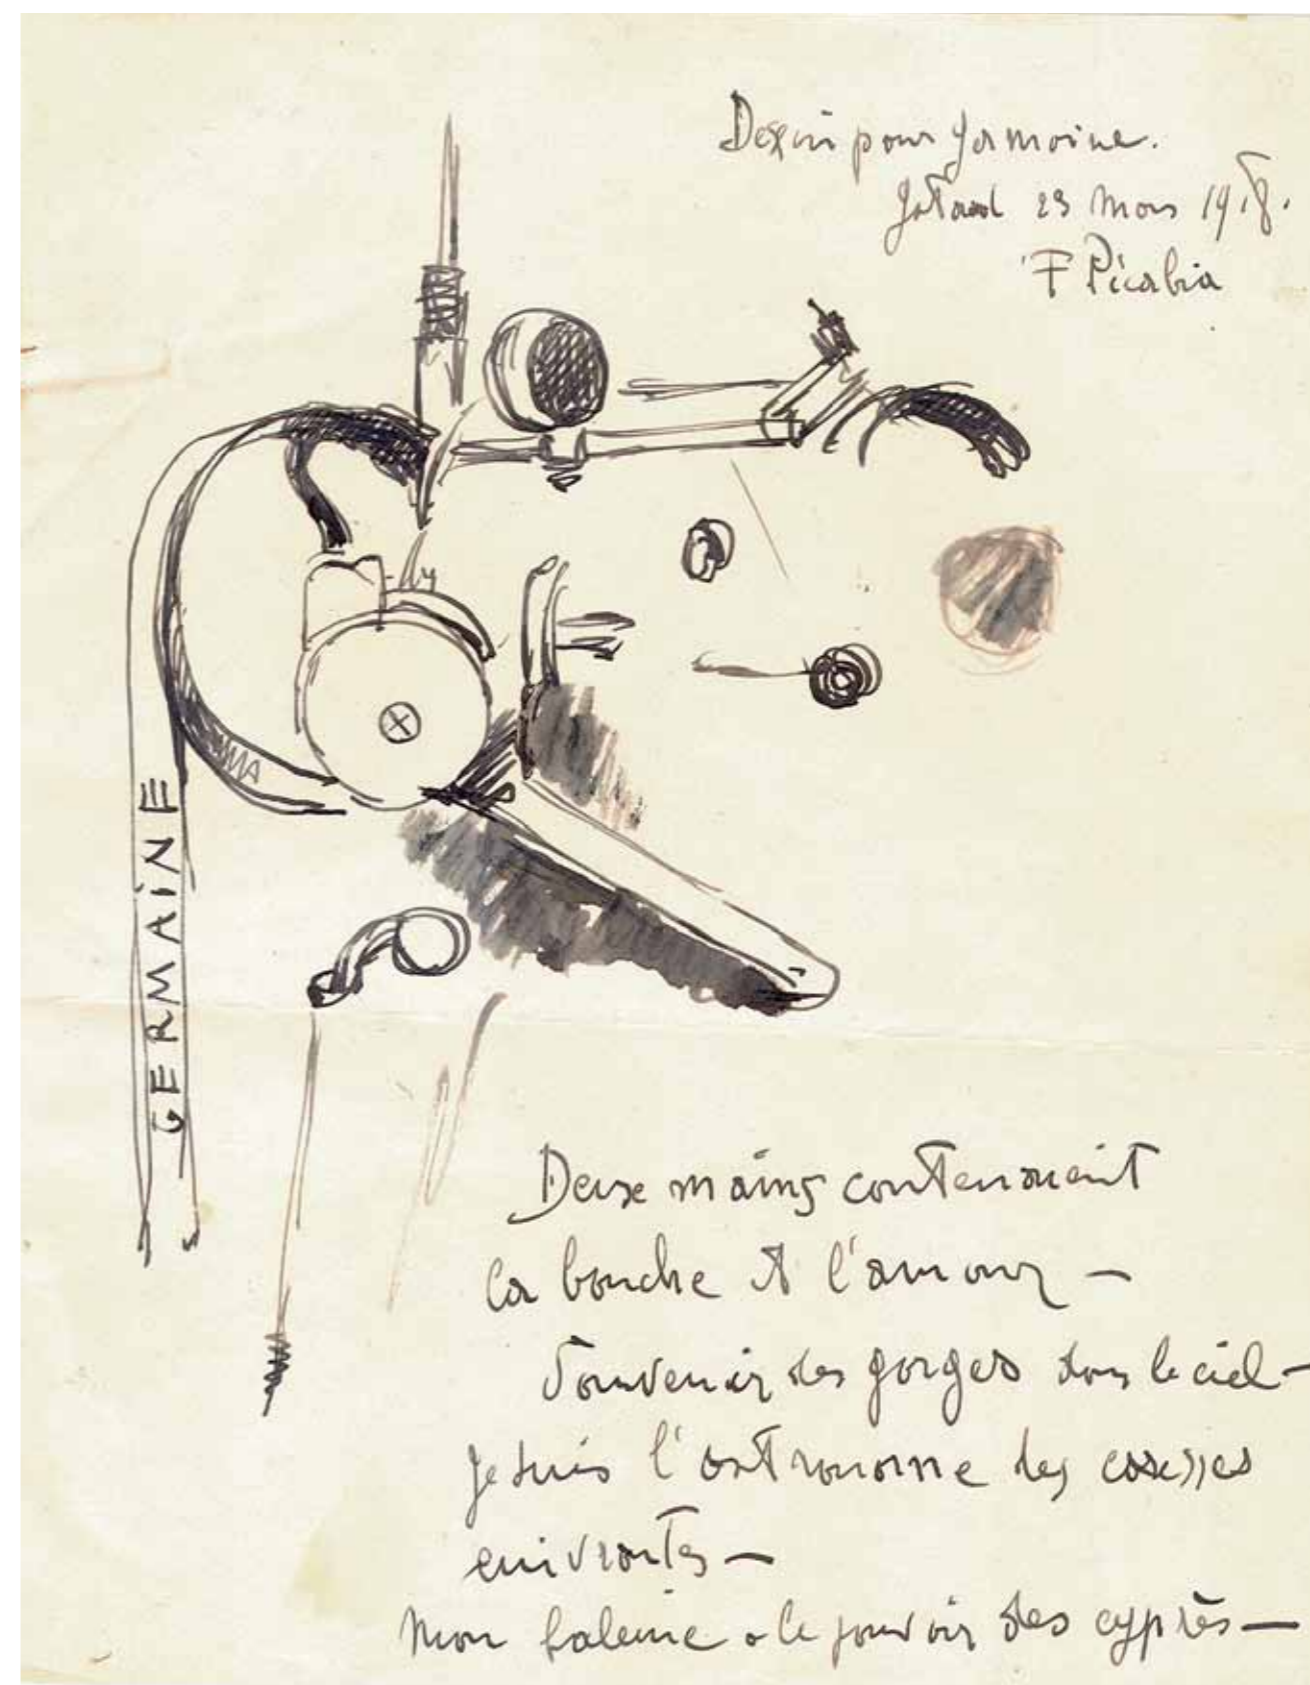 Dessin pour Germaine.
Gstaad 23 Mars 1918.
F Picabia
GERMAINE
Deux mains contenaient
la bouche et l'amour —
Souvenir des gorges dans le ciel —
je suis l'astronome des caresses
enivrantes —
Mon haleine a le pouvoir des cyprès —